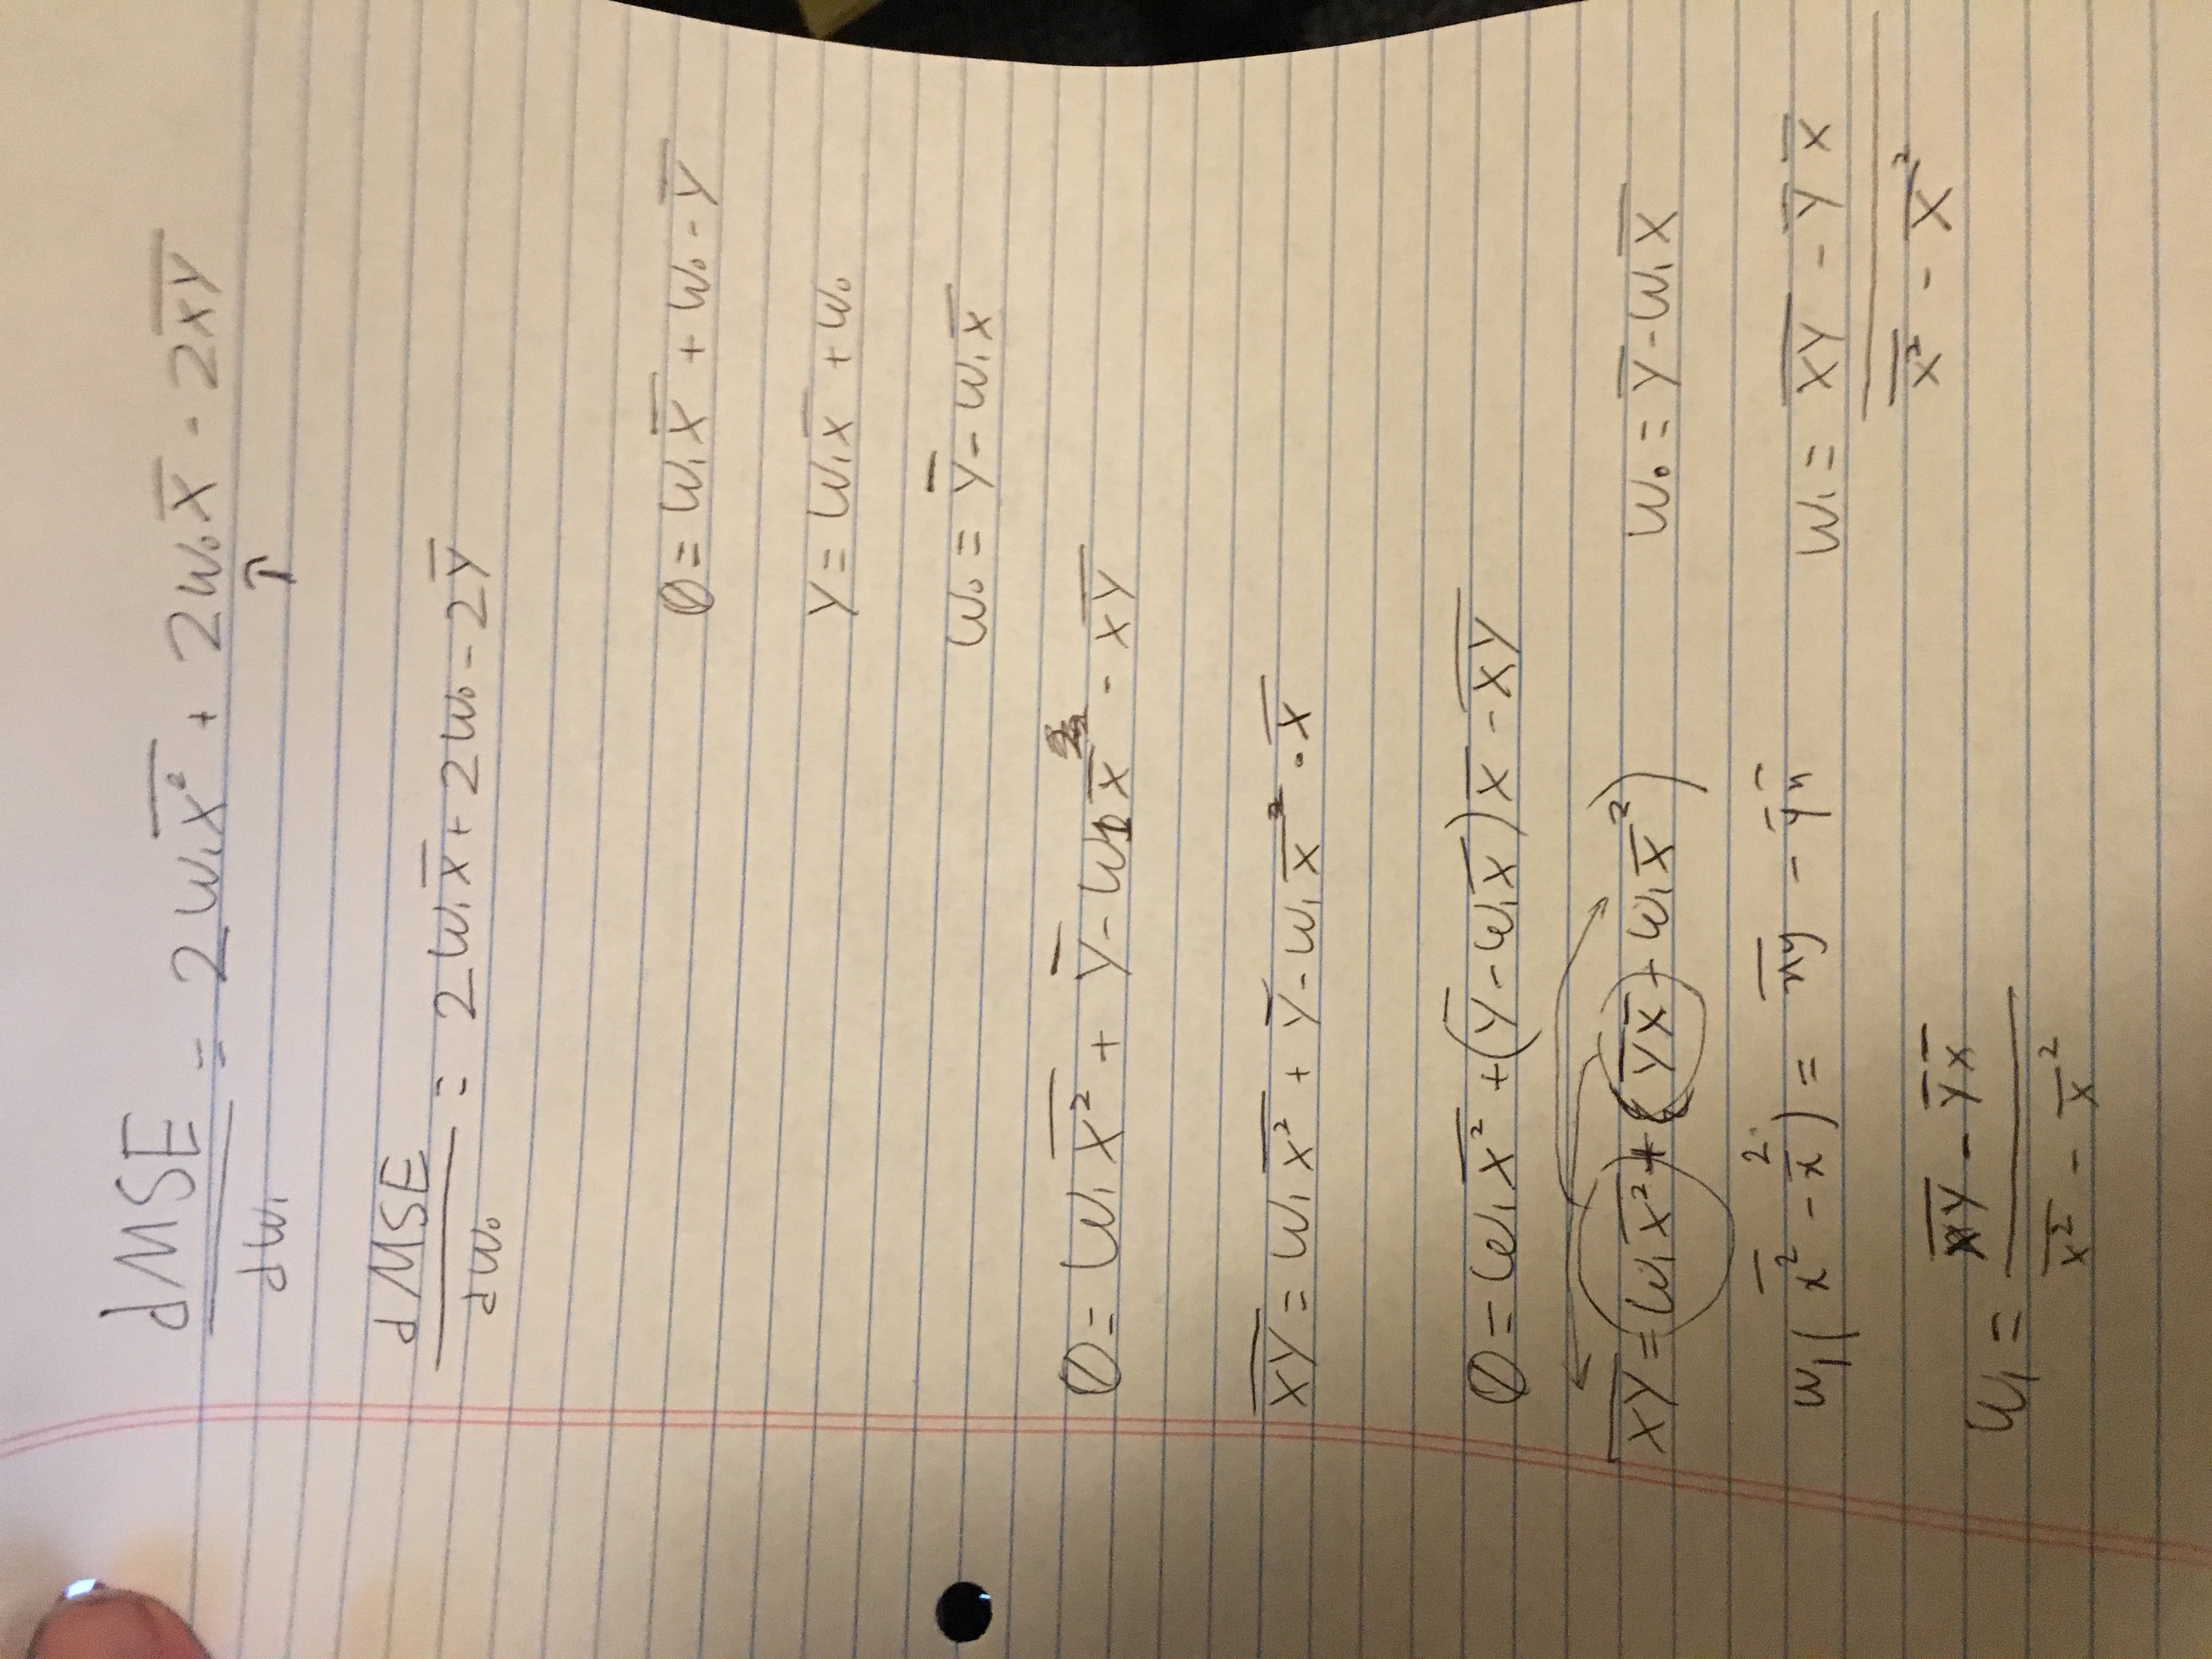 dMSE/dw₁ = 2w₁x̅²̅ + 2w₀x̅ - 2x̅y̅
↑
dMSE/dw₀ = 2w₁x̅ + 2w₀ - 2y̅
0 = w₁x̅ + w₀ - y̅
y = w₁x̅ + w₀
w₀ = y̅ - w₁x̅
0 = w₁x̅²̅ + y̅ - w₁x̅ - xy̅
x̅y̅ = w₁x̅²̅ + y̅ - w₁x̅ · x̅
0 = w₁x̅²̅ + (y̅ - w₁x̅)x̅ - x̅y̅
x̅y̅ = w₁x̅²̅ + (y̅ x̅ - w₁x̅²)
w₀ = y̅ - w₁x̅
w₁(x̅²̅ - x̅²) = x̅y̅ - y̅ x̅
w₁ = (x̅y̅ - y̅ x̅)/(x̅²̅ - x̅²)
w₁ = (x̅y̅ - y̅ x̅)/(x̅²̅ - x̅²)